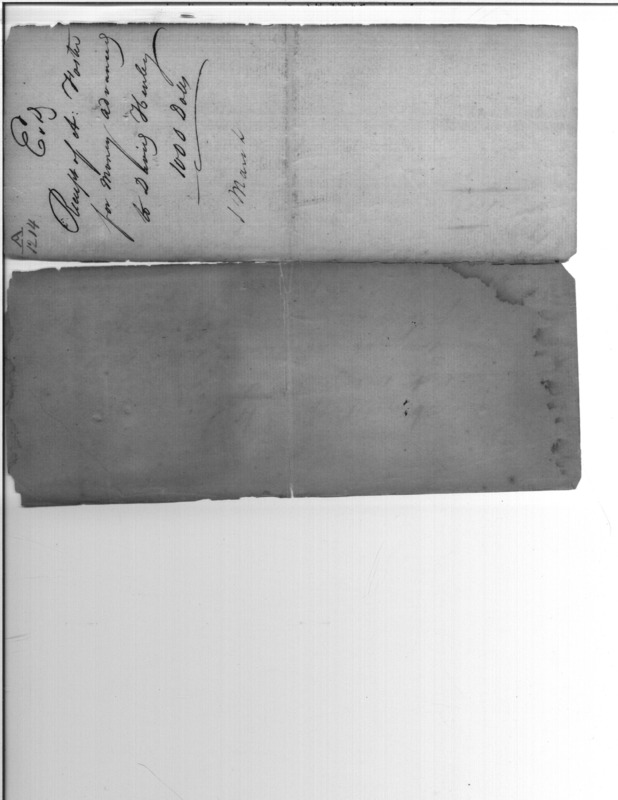 A
1214
Receipt of A: Foster
for Money advanced
to David Henley
1000 Dolls
1 March